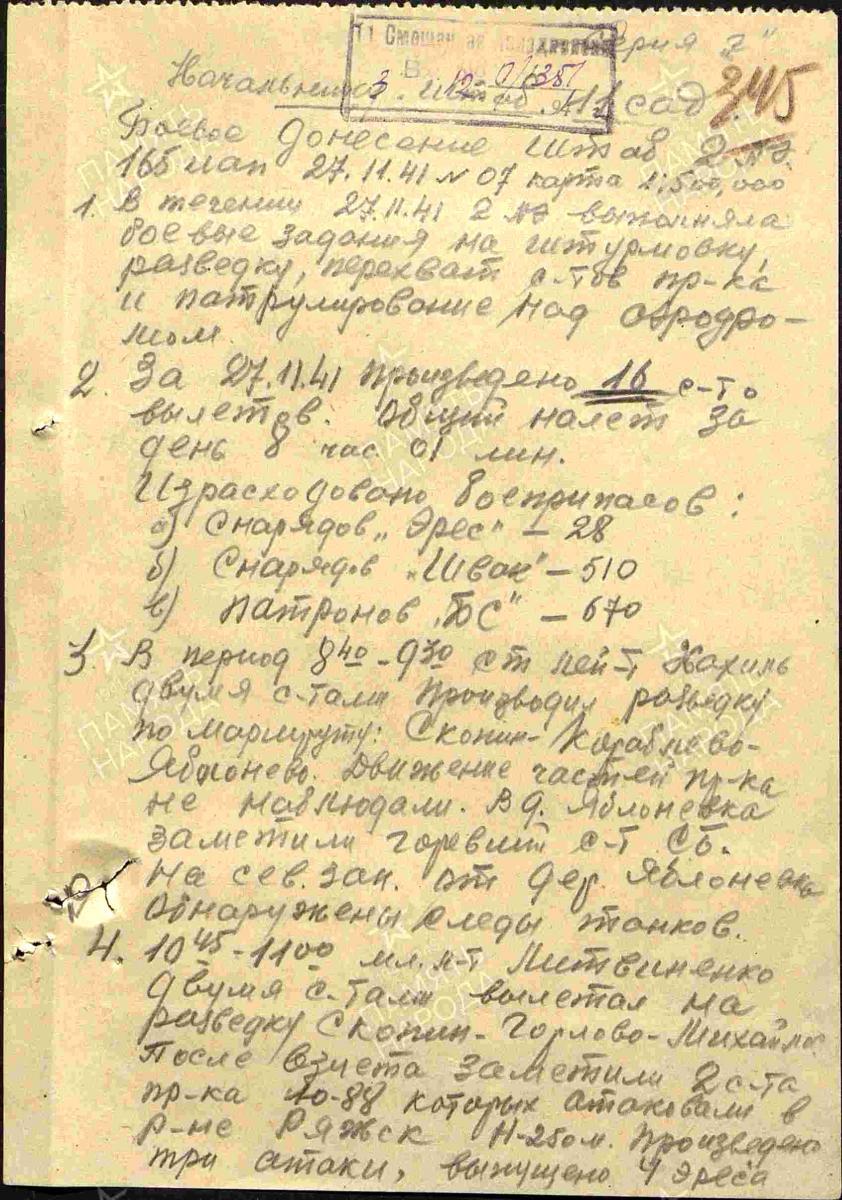 11 Смешан ая Авиадивизия
Серия „2"
345
Вх. 0/1351
3 12
Начальнику штаба 11 сад.
Боевое донесение штаб 2 АЭ.
165 иап 27.11.41 № 07 карта 1:500,000
1. В течении 27.11.41 2 АЭ выполняла
боевые задания на штурмовку,
разведку, перехват с-тов пр-ка
и патрулирование над аэродро-
мом.
2. За 27.11.41 произведено 16 с-то
вылетов. Общий налет за
день 8 час 01 мин.
Израсходовано боеприпасов:
а) Снарядов „Эрес" – 28
б) Снарядов „Швак" – 510
в) Патронов „БС" – 670
3. В период 8 40 - 9 30 ст лей-т
двумя с-тами производил разведку
по маршруту: Скопин - Кораблево -
Яблонево. Движение частей пр-ка
не наблюдали. В д. Яблоневка
заметили горевший с-т СБ.
На сев. зап. от дер. Яблоневка
обнаружены следы танков.
4. 10 45 - 11 00 мл. л-т Литвиненко
двумя с-тами вылетал на
разведку Скопин - Горлово - Михайлов
После взлета заметили 2 с-та
пр-ка Ю-88 которых атаковали в
р-не Ряжск Н-250м. Произведено
три атаки, выпущено 4 эреса